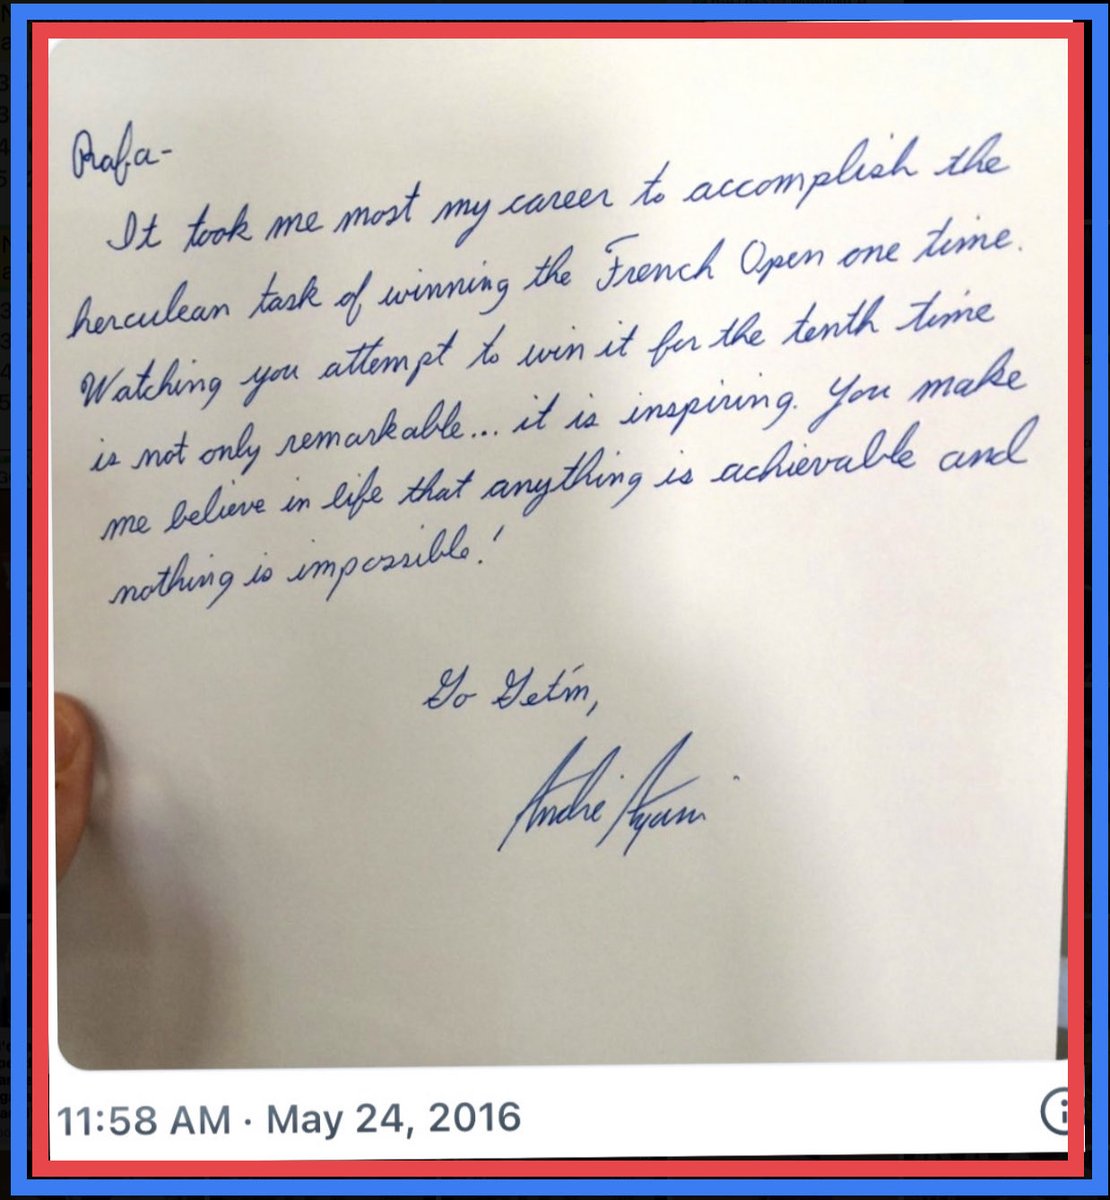 Rafa-
It took me most my career to accomplish the
herculean task of winning the French Open one time.
Watching you attempt to win it for the tenth time
is not only remarkable... it is inspiring. You make
me believe in life that anything is achievable and
nothing is impossible!
Go Get'm,
Andre Agassi
11:58 AM · May 24, 2016